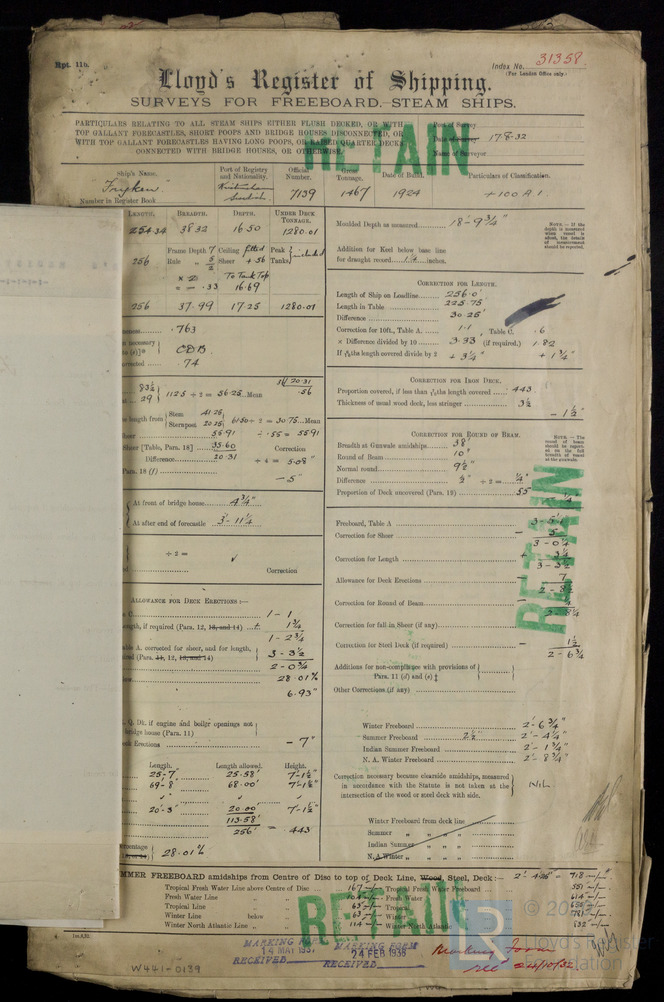 Rpt. 11b.
Index No. 31358
(For London Office only.)
Lloyd's Register of Shipping.
SURVEYS FOR FREEBOARD.—STEAM SHIPS.
PARTICULARS RELATING TO ALL STEAM SHIPS EITHER FLUSH DECKED, OR WITH
TOP GALLANT FORECASTLES, SHORT POOPS AND BRIDGE HOUSES DISCONNECTED, OR
WITH TOP GALLANT FORECASTLES HAVING LONG POOPS, OR RAISED QUARTER DECKS
CONNECTED WITH BRIDGE HOUSES, OR OTHERWISE.
RETAIN
Port of Survey
Date of Survey 17.8.32
Name of Surveyor
Ship's Name.
Port of Registry and Nationality.
Official Number.
Gross Tonnage.
Date of Build.
Particulars of Classification.
7139
1467
1924
+100 A1
Number in Register Book
LENGTH. BREADTH. DEPTH. UNDER DECK TONNAGE.
254.34 38.32 16.50 1280.01
Frame Depth 7 Ceiling fitted Peak Tanks included
256 Rule Sheer + 56
To Tank Top
= - .33 16.69
256 37.99 17.25 1280.01
.763
CDB
74
1125 ÷ 2 = 56.25 Mean
Stem 41.25
Sternpost 20.25 61.50 ÷ 2 = 30.75 Mean
55.91 ÷ .55 = 55.91
Sheer [Table, Para. 18] 35.60 Correction
Difference 20.31 ÷ 4 = 5.08"
Para. 18 (f) - 5"
At front of bridge house 4 3/4"
At after end of forecastle 3'-11 1/4
÷ 2 =
Correction
ALLOWANCE FOR DECK ERECTIONS :—
1 - 1
length, if required (Para. 12, 13, and 14) 1 3/4
1 - 2 3/4
corrected for sheer, and for length,
(Para. 11, 12, 13, and 14) 3 - 3 1/2
2 - 0 3/4
28.01%
6.93"
Q. Dk. if engine and boiler openings not
bridge house (Para. 11)
Deck Erections - 7"
Length. Length allowed. Height.
25-7" 25.58' 7'-1 1/2"
69-8 68.00' 7'-1 1/2"
20'-3" 20.00 7'-1 1/2"
113.58'
256' = .443
28.01%
Moulded Depth as measured 18-9 3/4"
Addition for Keel below base line
for draught record inches.
NOTE.—If the depth is measured when vessel is afloat, the details of measurement should be reported.
CORRECTION FOR LENGTH.
Length of Ship on Loadline 256.0'
Length in Table 225.75
Difference 30.25'
Correction for 10ft., Table A. 1.1 Table C. .6
× Difference divided by 10 3.33 (if required.) 1.82
If 6/10ths length covered divide by 2 + 3 1/4" + 1 3/4"
CORRECTION FOR IRON DECK.
Proportion covered, if less than 7/10ths length covered .443
Thickness of usual wood deck, less stringer 3 1/2
- 1 1/2"
CORRECTION FOR ROUND OF BEAM.
Breadth at Gunwale amidships 38'
Round of Beam 10"
Normal round 9 1/2"
Difference 1/2" ÷ 2 = 1/4"
Proportion of Deck uncovered (Para. 19) 55
RETAIN
Freeboard, Table A
Correction for Sheer - 5
3 - 0 1/4
Correction for Length + 3 1/4
3 - 3 1/2
Allowance for Deck Erections - 7
2 - 8 1/2
Correction for Round of Beam
Correction for fall in Sheer (if any)
Correction for Steel Deck (if required) - 1 1/2
2 - 6 3/4
Additions for non-compliance with provisions of
Para. 11 (d) and (e)
Other Corrections (if any)
Winter Freeboard 2'-6 3/4"
Summer Freeboard 2 1/2" 2'-4 1/4"
Indian Summer Freeboard 2'-1 3/4"
N. A. Winter Freeboard 2'-8 3/4"
Correction necessary because clearside amidships, measured
in accordance with the Statute is not taken at the
intersection of the wood or steel deck with side. Nil.
Winter Freeboard from deck line
Summer " " "
Indian Summer " " "
N.A. Winter " " "
SUMMER FREEBOARD amidships from Centre of Disc to top of Deck Line, Wood, Steel, Deck:— = 718
Tropical Fresh Water Line above Centre of Disc 167 Tropical Fresh Water Freeboard 551
Fresh Water Line " " Fresh Water 614
Tropical Line " " 63 Tropical
Winter Line below " 63 Winter 781
Winter North Atlantic Line " " 114 Winter North Atlantic 832
RETAIN
MARKING FORM
14 MAY 1937
RECEIVED
MARKING FORM
24 FEB 1936
RECEIVED
Marking Form
rec 24/10/32
W441-0139
Lloyd's Register
Foundation